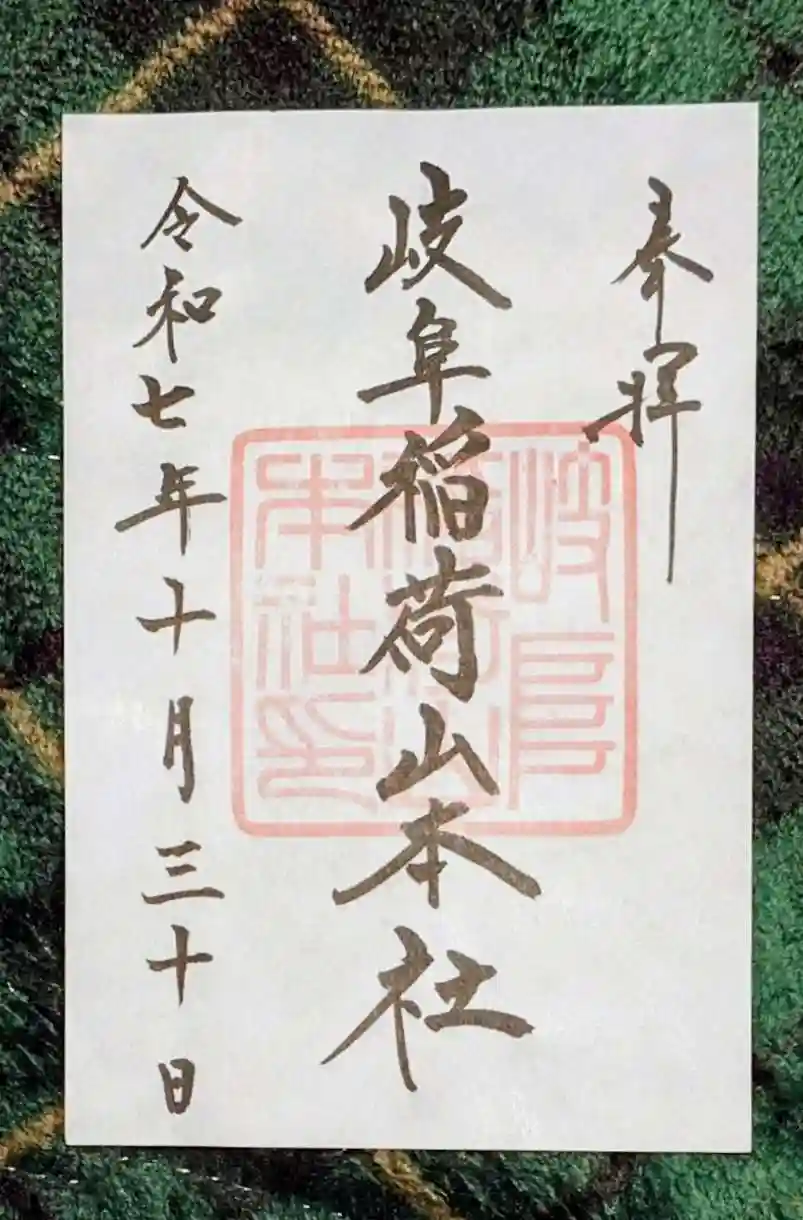 奉拝
岐阜稲荷山本社
令和七年十月三十日
岐阜
稲荷山
本社印